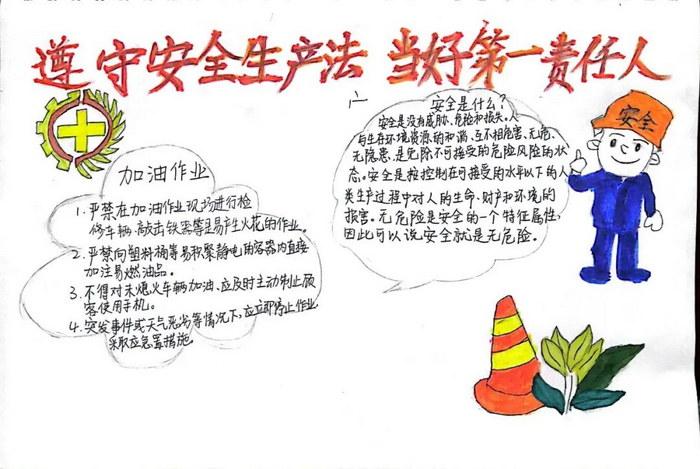 遵守安全生产法 当好第一责任人
加油作业
1. 严禁在加油作业现场进行检
修车辆、敲击铁器等易产生火花的作业。
2. 严禁向塑料桶等易积聚静电的容器内直接
加注易燃油品。
3. 不得对未熄火车辆加油、应及时主动制止顾
客使用手机。
4. 突发事件或天气恶劣等情况下,应立即停止作业
采取应急置措施。
安全是什么?
安全是没有威胁、危险和损失。人
与生存环境资源的和谐、互不相危害、无危、
无隐患、是免除不可接受的危险风险的状
态。安全是控制在可接受的水平以下的人
类生产过程中对人的生命、财产和环境的
损害。无危险是安全的一个特征属性,
因此可以说安全就是无危险。
安全